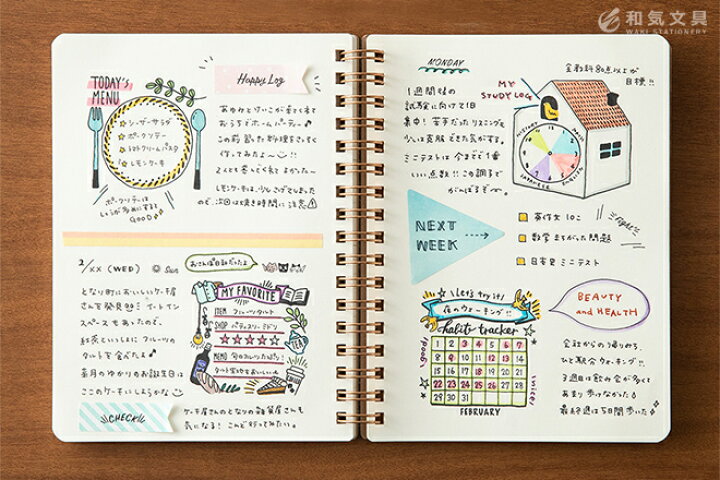 和気文具
WAKI STATIONERY
TODAY's
MENU
シーザーサラダ
ポークソテー
トマトクリームパスタ
レモンケーキ
ポークソテーは
しょうが多めにすると
GOOD
Happy Log
あゆみとりこが来てくれて
おうちでホームパーティー♪
この前習った料理をさっそく
作ってみたよ〜!!
2人とも喜んでくれてよかった〜
レモンケーキは、少しこげてしまった
ので、次回は焼き時間に注意
2/XX (WED)
Sun
おさんぽ日和だったよ
となり町においしいケーキ屋
さんを発見!! イートイン
スペースもあったので、
紅茶といっしょに フルーツの
タルトを食べたよ♪
来月のゆかりのお誕生日は
ここのケーキにしようかな
MY FAVORITE
ITEM フルーツタルト
SHOP パティスリー ミドリ
MEMO 旬のフルーツたっぷり
タルト生地もおいしい
TEA
CHECK!!
ケーキ屋さんのとなりの雑貨屋さんも
気になる! こんど行ってみたい。
MONDAY
1週間後の
試験に向けて1日
集中! 苦手だったリスニングも
少しは克服できた気がする。
ミニテストは 今までで1番
いい点数!! この調子で
がんばるぞ〜。
MY
STUDY LOG
全教科80点以上が
目標!!
HISTORY
MATH
JAPANESE
ENGLISH
NEXT
WEEK
英作文 10こ
数学 まちがった問題
日本史 ミニテスト
Fight!
Let's try it!
夜のウォーキング!!
habit tracker
good
nice!
1 2 3 4 5 6 7
8 9 10 11 12 13 14
15 16 17 18 19 20 21
22 23 24 25 26 27 28
29 30 31
FEBRUARY
BEAUTY
and HEALTH
会社からの帰りみち、
ひと駅分ウォーキング!!
3週目は飲み会が多くて
あまり歩けなかった
最終週は5日間歩いた